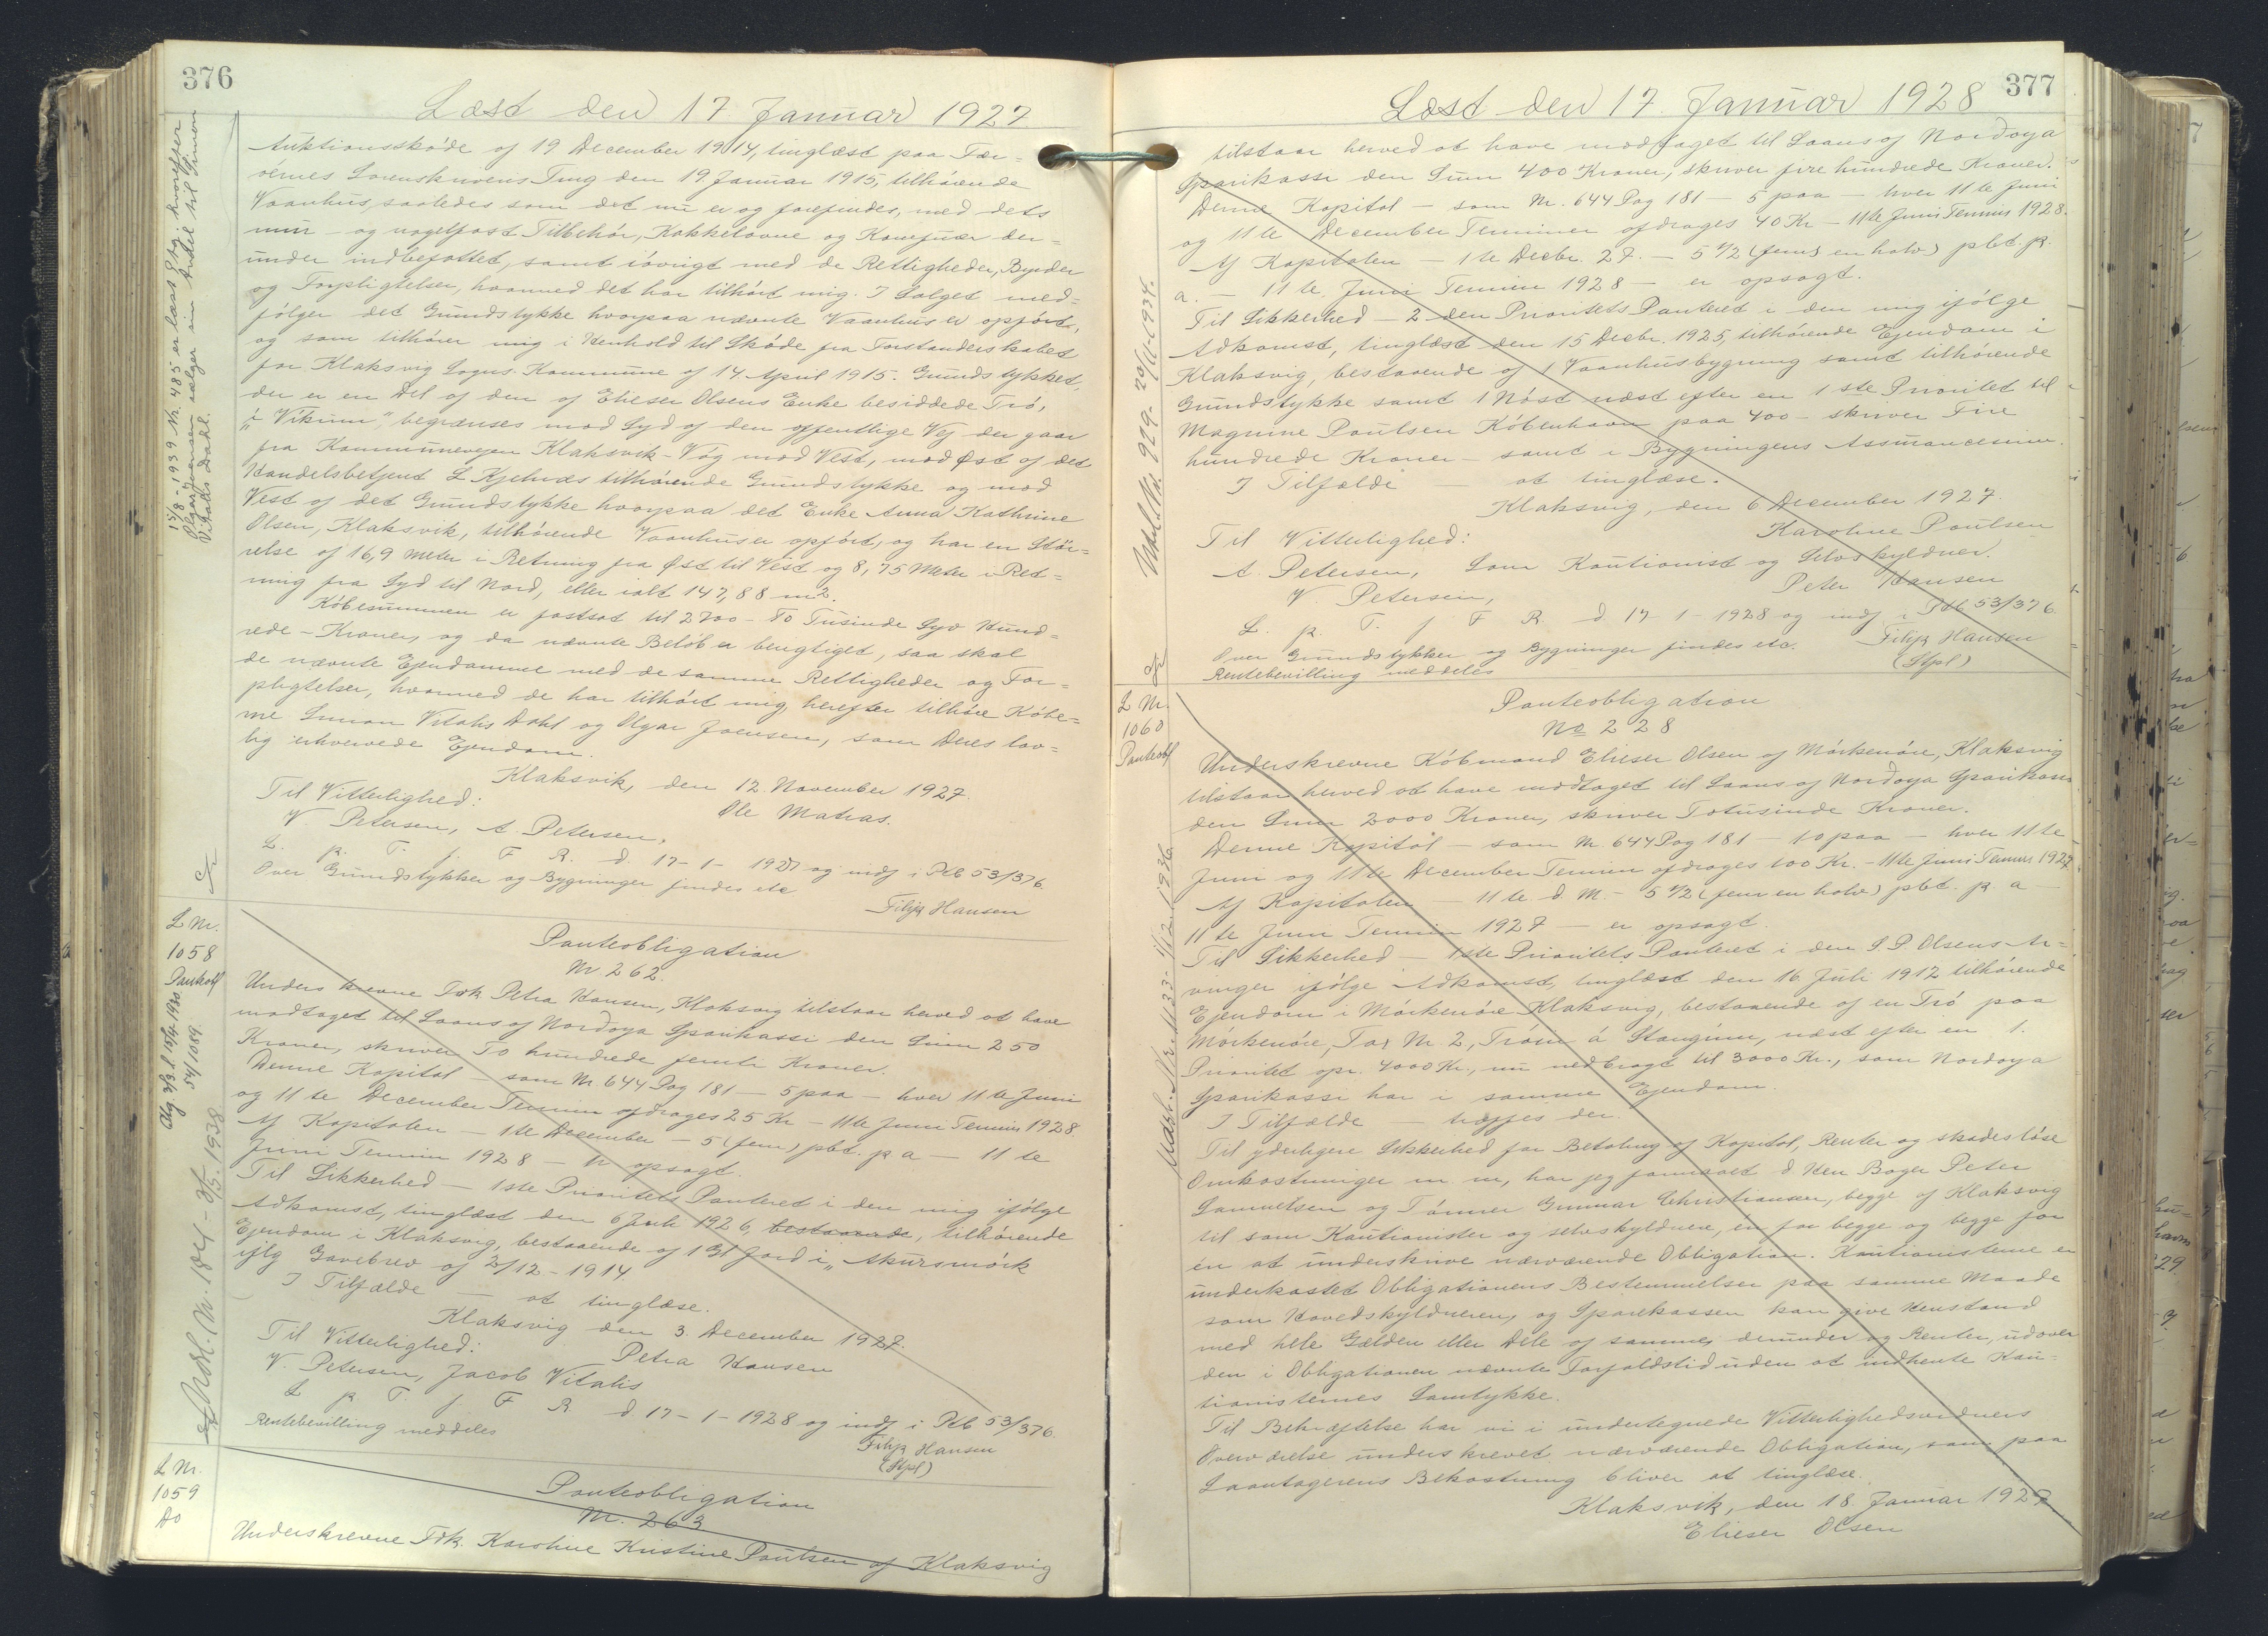 376
Læst den 17. Januar 1927
Auktionsskøde af 19 December 1914, tinglæst paa Fær-
øernes Sorenskriveris Ting den 19 Januar 1915, tilhørende
Vaanhus, saaledes som det nu er og forefindes, med dets
mur- og nagelfast Tilbehør, Kakkelovne og Komfuær der-
under indbefattet, samt iøvrigt med de Rettigheder, Byrder
og Forpligtelser, hvormed det har tilhørt mig. I Salget med-
følger det Grundstykke hvorpaa nævnte Vaanhus er opført,
og som tilhører mig i Henhold til Skøde fra Forstanderskabet
for Klaksvig Sogns Kommune af 14. April 1915. Grundstykket,
der er en Del af den af Elieser Olsens Enke besiddede Trø,
"i Vikum", begrænses mod Syd af den offentlige Vej der gaar
fra Kommunevejen Klaksvik-Våg mod Vest, mod Øst af det
Handelsbetjent L Kjelnæs tilhørende Grundstykke og mod
Vest af det Grundstykke hvorpaa det Enke Anna Kathrine
Olsen, Klaksvik, tilhørende Vaanhus er opført, og har en Stør-
relse af 16,9 Meter i Retning fra Øst til Vest og 8,75 Meter i Ret-
ning fra Syd til Nord, eller ialt 147,88 m2.
Købesummen er fastsat til 2700 - To Tusinde Syv Hund-
rede - Kroner, og da nævnte Beløb er berigtiget, saa skal
de nævnte Ejendomme med de samme Rettigheder og For-
pligtelser, hvormed de har tilhørt mig, herefter tilhøre Købe-
rne Simon Vitalis Dahl og Olgar Joensen, som Deres lov-
lig erhvervede Ejendom.
Klaksvik, den 12. November 1927.
Til Vitterlighed: Ole Matras.
V. Petersen, A. Petersen.
L. p. T. f. F R. d. 17-1-1927 og indf i Ptb 53/376
Over Grundstykker og Bygninger findes etc
Filip Hansen
15/8-1939 Nr. 485 er læst Skj. hvorefter
Olgar Joensen sælger sin Andel til Simon
Vitalis Dahl.
L Nr.
1058
Panteobl
Panteobligation
Nr 262.
Underskrevne Frk Petra Hansen, Klaksvig tilstaar herved at have
modtaget til Laans af Norðoya Sparikassi den Sum 250
Kroner, skriver To hundrede femti Kroner.
Denne Kapital - som Nr 644 Pag 181 - 5 paa - hver 11te Juni
og 11te December Termin afdrages 25 Kr - 11te Juni Termin 1928.
Af Kapitalen - 1te December - 5 (fem) pbt. p a - 11te
Juni Termin 1928 - er opsagt.
Til Sikkerhed - 1ste Prioritets Panteret i den mig ifølge
Adkomst, tinglæst den 6 Juli 1926, bestaaende, tilhørende
Ejendom i Klaksvig, bestaaende af 1 Gl Jord i "Akursmørk
iflg Gavebrev af 2/12-1914.
I Tilfælde - at tinglæse.
Klaksvig den 3. December 1927.
Til Vitterlighed: Petra Hansen
V. Petersen, Jacob Vitalis
L p T. f F R. d 17-1-1928 og indf i Ptb 53/376.
Rentebevilling meddeles
Filip Hansen
(Stpl)
Udsl. Nr. 184 - 3/5 1938
L Nr.
1059
Do
Panteobligation
Nr. 263
Underskrevne Frk. Karoline Kristine Poulsen af Klaksvig
377
Læst den 17. Januar 1928
tilstaar herved at have modtaget til Laans af Norðoya
Sparikassi den Sum 400 Kroner, skriver fire hundrede Kroner.
Denne Kapital - som Nr. 644 Pag 181 - 5 paa - hver 11te Juni
og 11te December Terminer afdrages 40 Kr - 11te Juni Termin 1928.
Af Kapitalen - 1te Decbr. 27. - 5 1/2 (fem en halv) pbt. p.
a. - 11te Juni Termin 1928 - er opsagt.
Til Sikkerhed - 2den Prioritets Panteret i den mig ifølge
Adkomst, tinglæst den 15 Decbr. 1925, tilhørende Ejendom i
Klaksvig, bestaaende af 1 Vaanhusbygning samt tilhørende
Grundstykke samt 1 Nøst næst efter en 1ste Prioritet til
Magnine Poulsen København paa 400 - skriver Fire
hundrede Kroner - samt i Bygningens Assurancesum.
I Tilfælde - at tinglæse.
Klaksvig, den 6 December 1927.
Til Vitterlighed: Karoline Poulsen
A. Petersen, Som Kautionist og Selvskyldner.
V. Petersen, Peter Hansen
L. p. T. f F R. d. 17-1-1928 og indf i Ptb 53/376
Over Grundstykker og Bygninger findes etc. Filip Hansen
Rentebevilling meddeles (Stpl)
Udsl. Nr. 929 - 20/11-1934.
L Nr.
1060
Panteobl
Panteobligation
No 228
Underskrevne Købmand Elieser Olsen af Mørkenøre, Klaksvig
tilstaar herved at have modtaget til Laans af Norðoya Sparikassi
den Sum 2000 Kroner, skriver Totusinde Kroner.
Denne Kapital - som Nr 644 Pag 181 - 10 paa - hver 11te
Juni og 11te December Termin afdrages 100 Kr. - 11te Juni Termin 1927.
Af Kapitalen - 11te d. M. - 5 1/2 (fem en halv) pbt. p a -
11te Juni Termin 1927 - er opsagt.
Til Sikkerhed - 1ste Prioritets Panteret i den J. P. Olsens Ar-
vinger ifølge Adkomst, tinglæst den 16 Juli 1912 tilhørende
Ejendom i Mørkenøre Klaksvig, bestaaende af en Trø paa
Mørkenøre, Tax Nr 2, Trøin á Stangum, næst efter en 1.
Prioritet opr. 4000 Kr., nu nedbragt til 3000 Kr., som Norðoya
Sparikassi har i samme Ejendom.
I Tilfælde - træffes der.
Til yderligere Sikkerhed for Betaling af Kapital, Renter og skadesløse
Omkostninger m. m., har jeg formaaet d Hrr Bager Peter
Samuelsen og Tømrer Gunnar Christiansen, begge af Klaksvig
til som Kautionister og selvskyldnere, en for begge og begge for
en at underskrive nærværende Obligation. Kautionisterne er
underkastet Obligationens Bestemmelser paa samme Maade
som Hovedskyldneren, og Sparekassen kan give Henstand
med hele Gælden eller Dele af samme, derunder og Renter, udover
den i Obligationen nævnte Forfaldstid uden at indhente Kau-
tionisternes Samtykke.
Til Bekræftelse har vi i undertegnede Vitterlighedsvidners
Overværelse underskrevet nærværende Obligation, som paa
Laantagerens Bekostning bliver at tinglæse.
Klaksvik, den 18. Januar 1927
Elieser Olsen